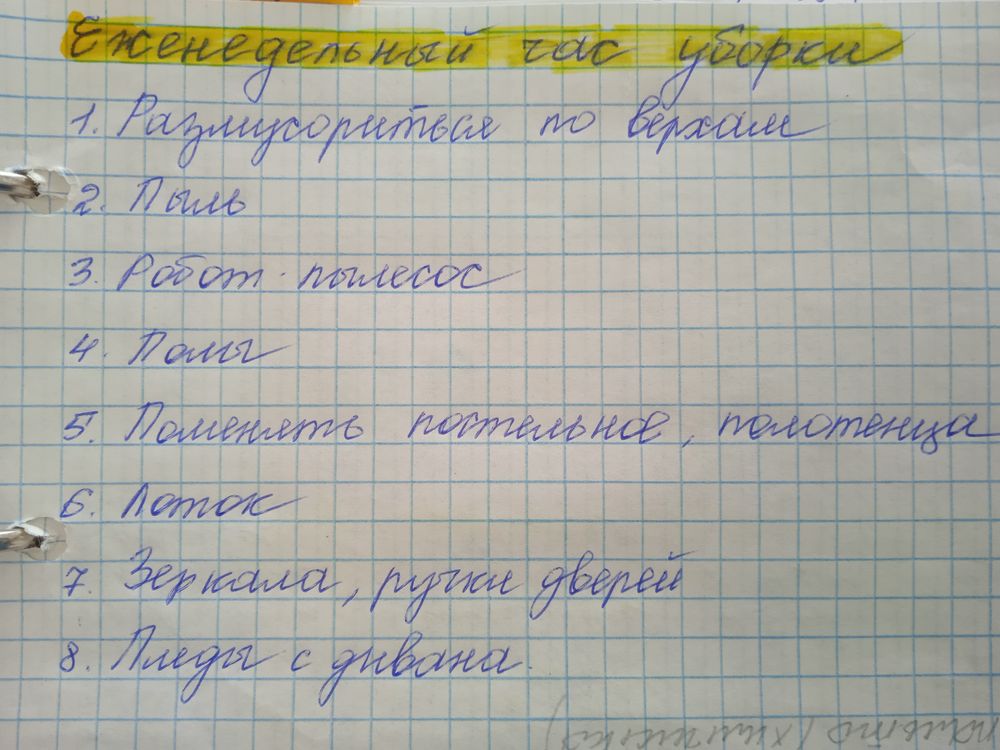 Еженедельный час уборки
1. Размусориться по верхам
2. Пыль
3. Робот-пылесос
4. Полы
5. Поменять постельное, полотенца
6. Лоток
7. Зеркала, ручки дверей
8. Пледы с дивана.